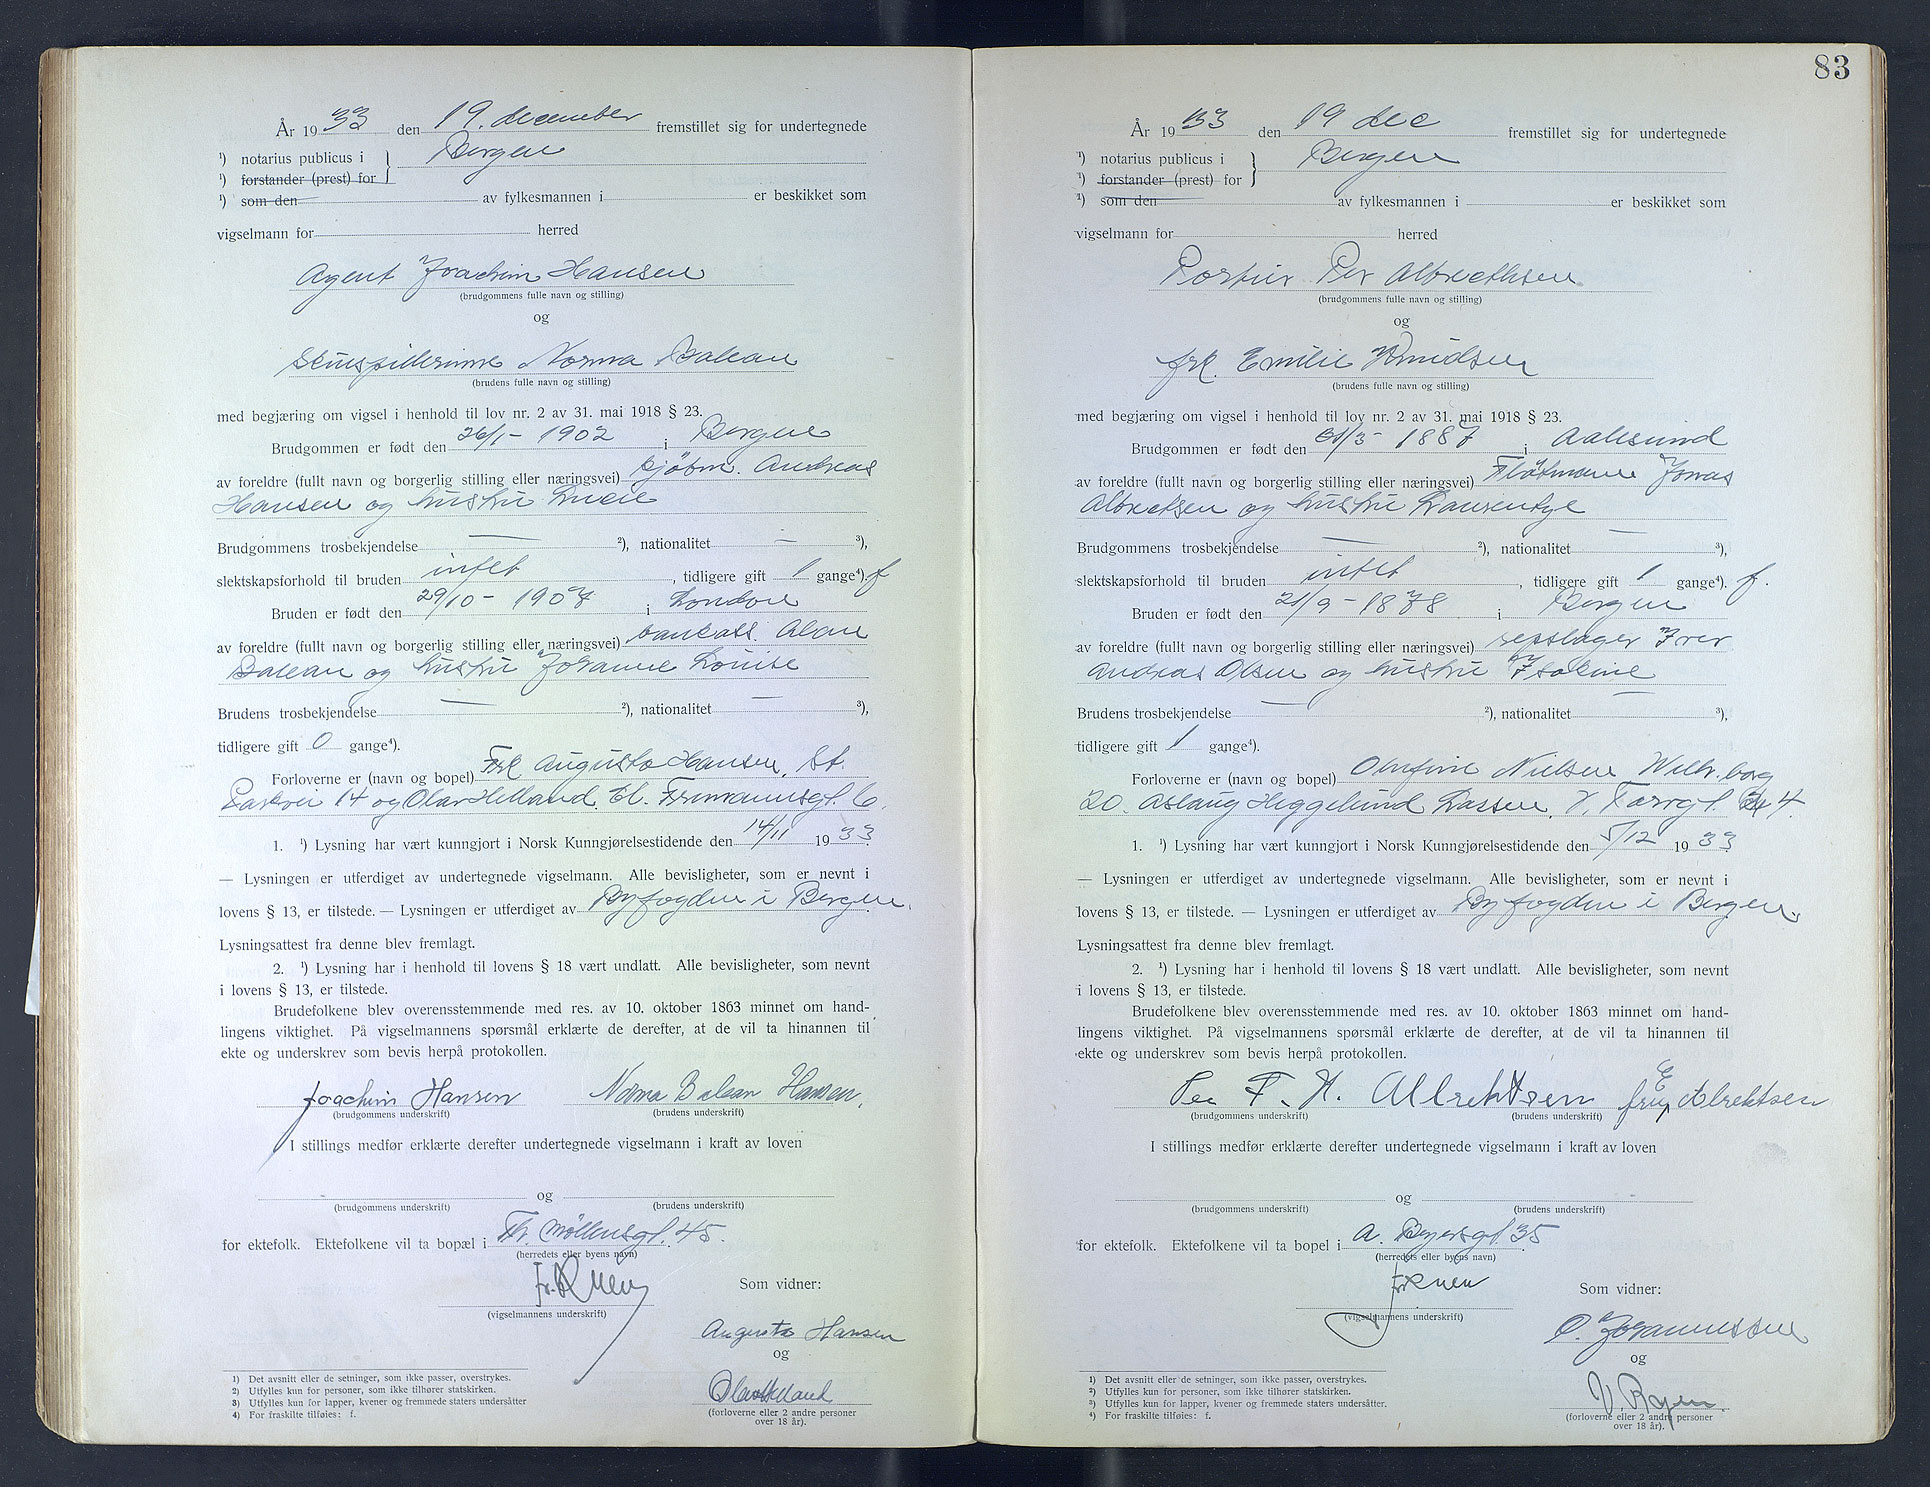 År 19 33 den 19. december fremstillet sig for undertegnede
¹) notarius publicus i } Bergen
¹) forstander (prest) for
¹) som den av fylkesmannen i er beskikket som
vigselmann for herred
Agent Joachim Hansen
(brudgommens fulle navn og stilling)
og
Skuespillerinne Norma Balean
(brudens fulle navn og stilling)
med begjæring om vigsel i henhold til lov nr. 2 av 31. mai 1918 § 23.
Brudgommen er født den 26/1 - 1902 i Bergen
av foreldre (fullt navn og borgerlig stilling eller næringsvei) kjøbm. Andreas
Hansen og hustru Lucie
Brudgommens trosbekjendelse — ²), nationalitet — ³),
slektskapsforhold til bruden intet, tidligere gift 1 gange⁴). f
Bruden er født den 29/10 - 1907 i London
av foreldre (fullt navn og borgerlig stilling eller næringsvei) bankass. Alan
Balean og hustru Johanne Louise
Brudens trosbekjendelse — ²), nationalitet — ³),
tidligere gift 0 gange⁴).
Forloverne er (navn og bopel) Frk Augusta Hansen, St.
Parkvei 14 og Olav Helland, Cl. Frimannsgt. 6.
1. ¹) Lysning har vært kunngjort i Norsk Kunngjørelsestidende den 14/11 19 33
— Lysningen er utferdiget av undertegnede vigselmann. Alle bevisligheter, som er nevnt i
lovens § 13, er tilstede. — Lysningen er utferdiget av Byfogden i Bergen.
Lysningsattest fra denne blev fremlagt.
2. ¹) Lysning har i henhold til lovens § 18 vært undlatt. Alle bevisligheter, som nevnt
i lovens § 13, er tilstede.
Brudefolkene blev overensstemmende med res. av 10. oktober 1863 minnet om hand-
lingens viktighet. På vigselmannens spørsmål erklærte de derefter, at de vil ta hinannen til
ekte og underskrev som bevis herpå protokollen.
Joachim Hansen Norma Balean Hansen.
(brudgommens underskrift) (brudens underskrift)
I stillings medfør erklærte derefter undertegnede vigselmann i kraft av loven
og
(brudgommens underskrift) (brudens underskrift)
for ektefolk. Ektefolkene vil ta bopæl i Th. Møllensgt. 45.
(herredets eller byens navn)
Som vidner:
(vigselmannens underskrift)
Augusta Hansen
og
Olav Helland
(forloverne eller 2 andre personer
over 18 år).
1) Det avsnitt eller de setninger, som ikke passer, overstrykes.
2) Utfylles kun for personer, som ikke tilhører statskirken.
3) Utfylles kun for lapper, kvener og fremmede staters undersåtter
4) For fraskilte tilføies: f.
83
År 19 33 den 19 dec fremstillet sig for undertegnede
¹) notarius publicus i } Bergen
¹) forstander (prest) for
¹) som den av fylkesmannen i er beskikket som
vigselmann for herred
Portier Per Albrecthsen
(brudgommens fulle navn og stilling)
og
frk. Emilie Knudsen
(brudens fulle navn og stilling)
med begjæring om vigsel i henhold til lov nr. 2 av 31. mai 1918 § 23.
Brudgommen er født den 31/3 - 1887 i Aalesund
av foreldre (fullt navn og borgerlig stilling eller næringsvei) Fløtmann Jonas
Albrectsen og hustru Laurentze
Brudgommens trosbekjendelse — ²), nationalitet — ³),
slektskapsforhold til bruden intet, tidligere gift 1 gange⁴). f.
Bruden er født den 21/9 - 1878 i Bergen
av foreldre (fullt navn og borgerlig stilling eller næringsvei) repslager Iver
Andreas Olsen og hustru Isakine
Brudens trosbekjendelse — ²), nationalitet — ³),
tidligere gift 1 gange⁴).
Forloverne er (navn og bopel) Olufine Nielsen Wilh. borg
20. Aslaug Heggelund Lassen, V. Torvgt. 4.
1. ¹) Lysning har vært kunngjort i Norsk Kunngjørelsestidende den 5/12 19 33
— Lysningen er utferdiget av undertegnede vigselmann. Alle bevisligheter, som er nevnt i
lovens § 13, er tilstede. — Lysningen er utferdiget av Byfogden i Bergen.
Lysningsattest fra denne blev fremlagt.
2. ¹) Lysning har i henhold til lovens § 18 vært undlatt. Alle bevisligheter, som nevnt
i lovens § 13, er tilstede.
Brudefolkene blev overensstemmende med res. av 10. oktober 1863 minnet om hand-
lingens viktighet. På vigselmannens spørsmål erklærte de derefter, at de vil ta hinannen til
ekte og underskrev som bevis herpå protokollen.
Per F. K. Albrektsen fru E Albrektsen
(brudgommens underskrift) (brudens underskrift)
I stillings medfør erklærte derefter undertegnede vigselmann i kraft av loven
og
(brudgommens underskrift) (brudens underskrift)
for ektefolk. Ektefolkene vil ta bopel i A. Beyersgt. 35
(herredets eller byens navn)
Som vidner:
(vigselmannens underskrift)
O. Johannessen
og
(forloverne eller 2 andre personer
over 18 år).
¹) Det avsnitt eller de setninger, som ikke passer, overstrykes.
²) Utfylles kun for personer, som ikke tilhører statskirken.
³) Utfylles kun for lapper, kvener og fremmede staters undersåtter.
⁴) For fraskilte tilføies: f.